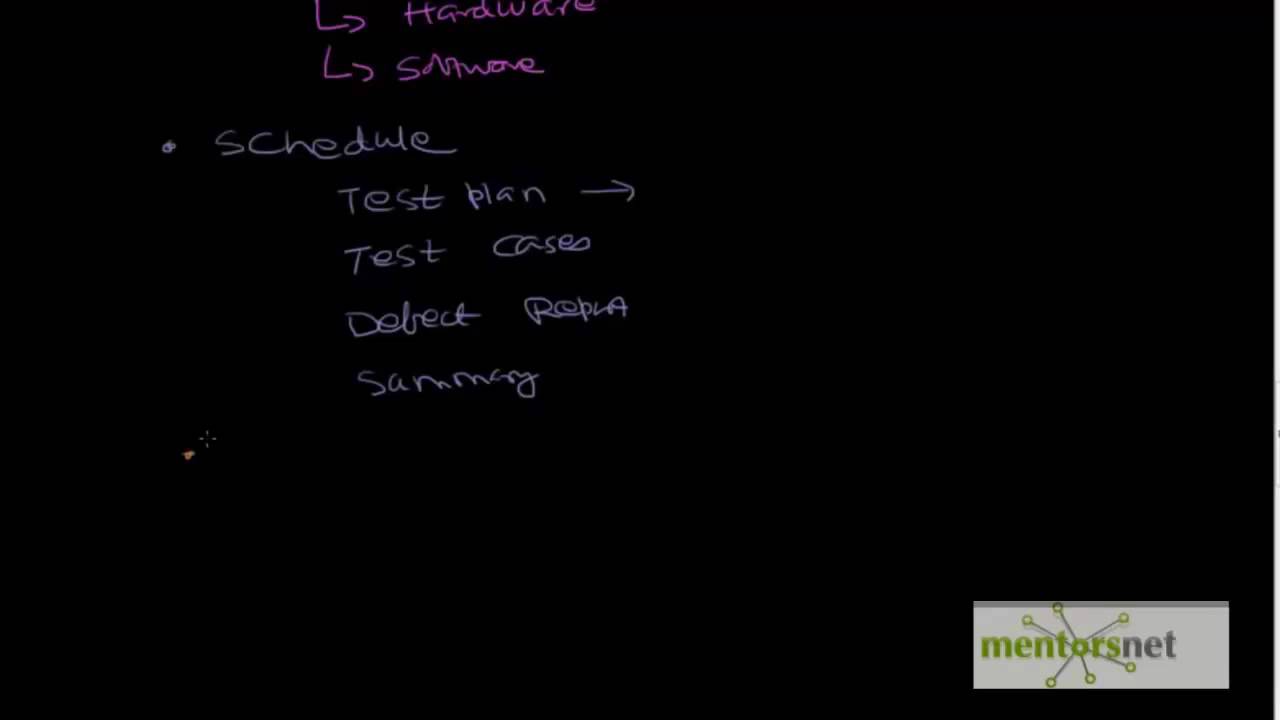 ↳ Hardware
↳ Software
• Schedule
Test plan →
Test cases
Defect Report
Summary
mentorsnet